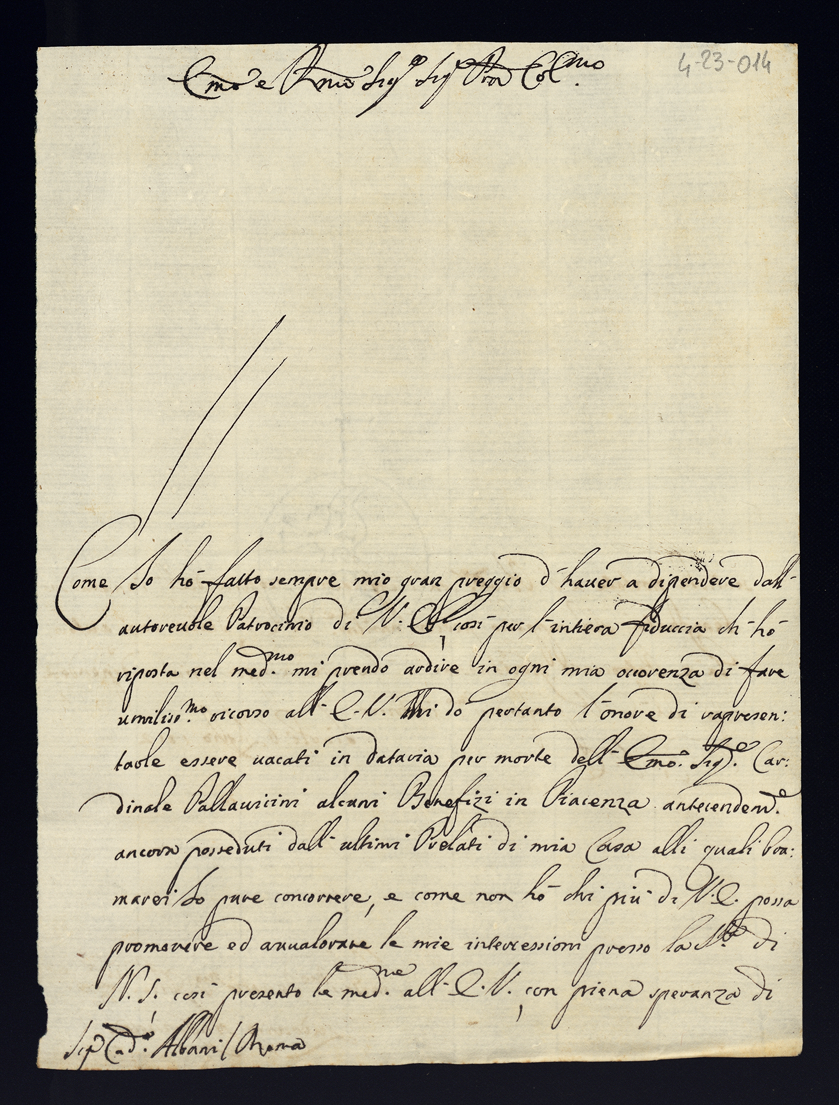 4-23-014
Emo e Rmo Sigr Sigr Pron Colmo
Come Io hò fatto sempre mio gran preggio d'haver a dipendere dall'
autorevole Patrocinio di V. E., così per l'intiera fiduccia ch'hò
riposta nel med.mo mi prendo ardire in ogni mia occorenza di fare
umiliss.mo ricorso all'E.V. Mi dò pertanto l'onore di rapresen:
tarle essere vacati in dataria per morte dell'Emo. Sig.e Car:
dinale Pallavicini alcuni Benefizi in Piacenza antecedent.e
ancora posseduti dall'ultimi Prelati di mia Casa alli quali bra:
marei Io pure concorrere, e come non hò chi più di V. E. possa
promovere ed avvalorare le mie intercessioni presso la S.tà di
N. S. così presento le med.me all'E.V., con piena speranza di
Sigr Card.l Albani / Roma